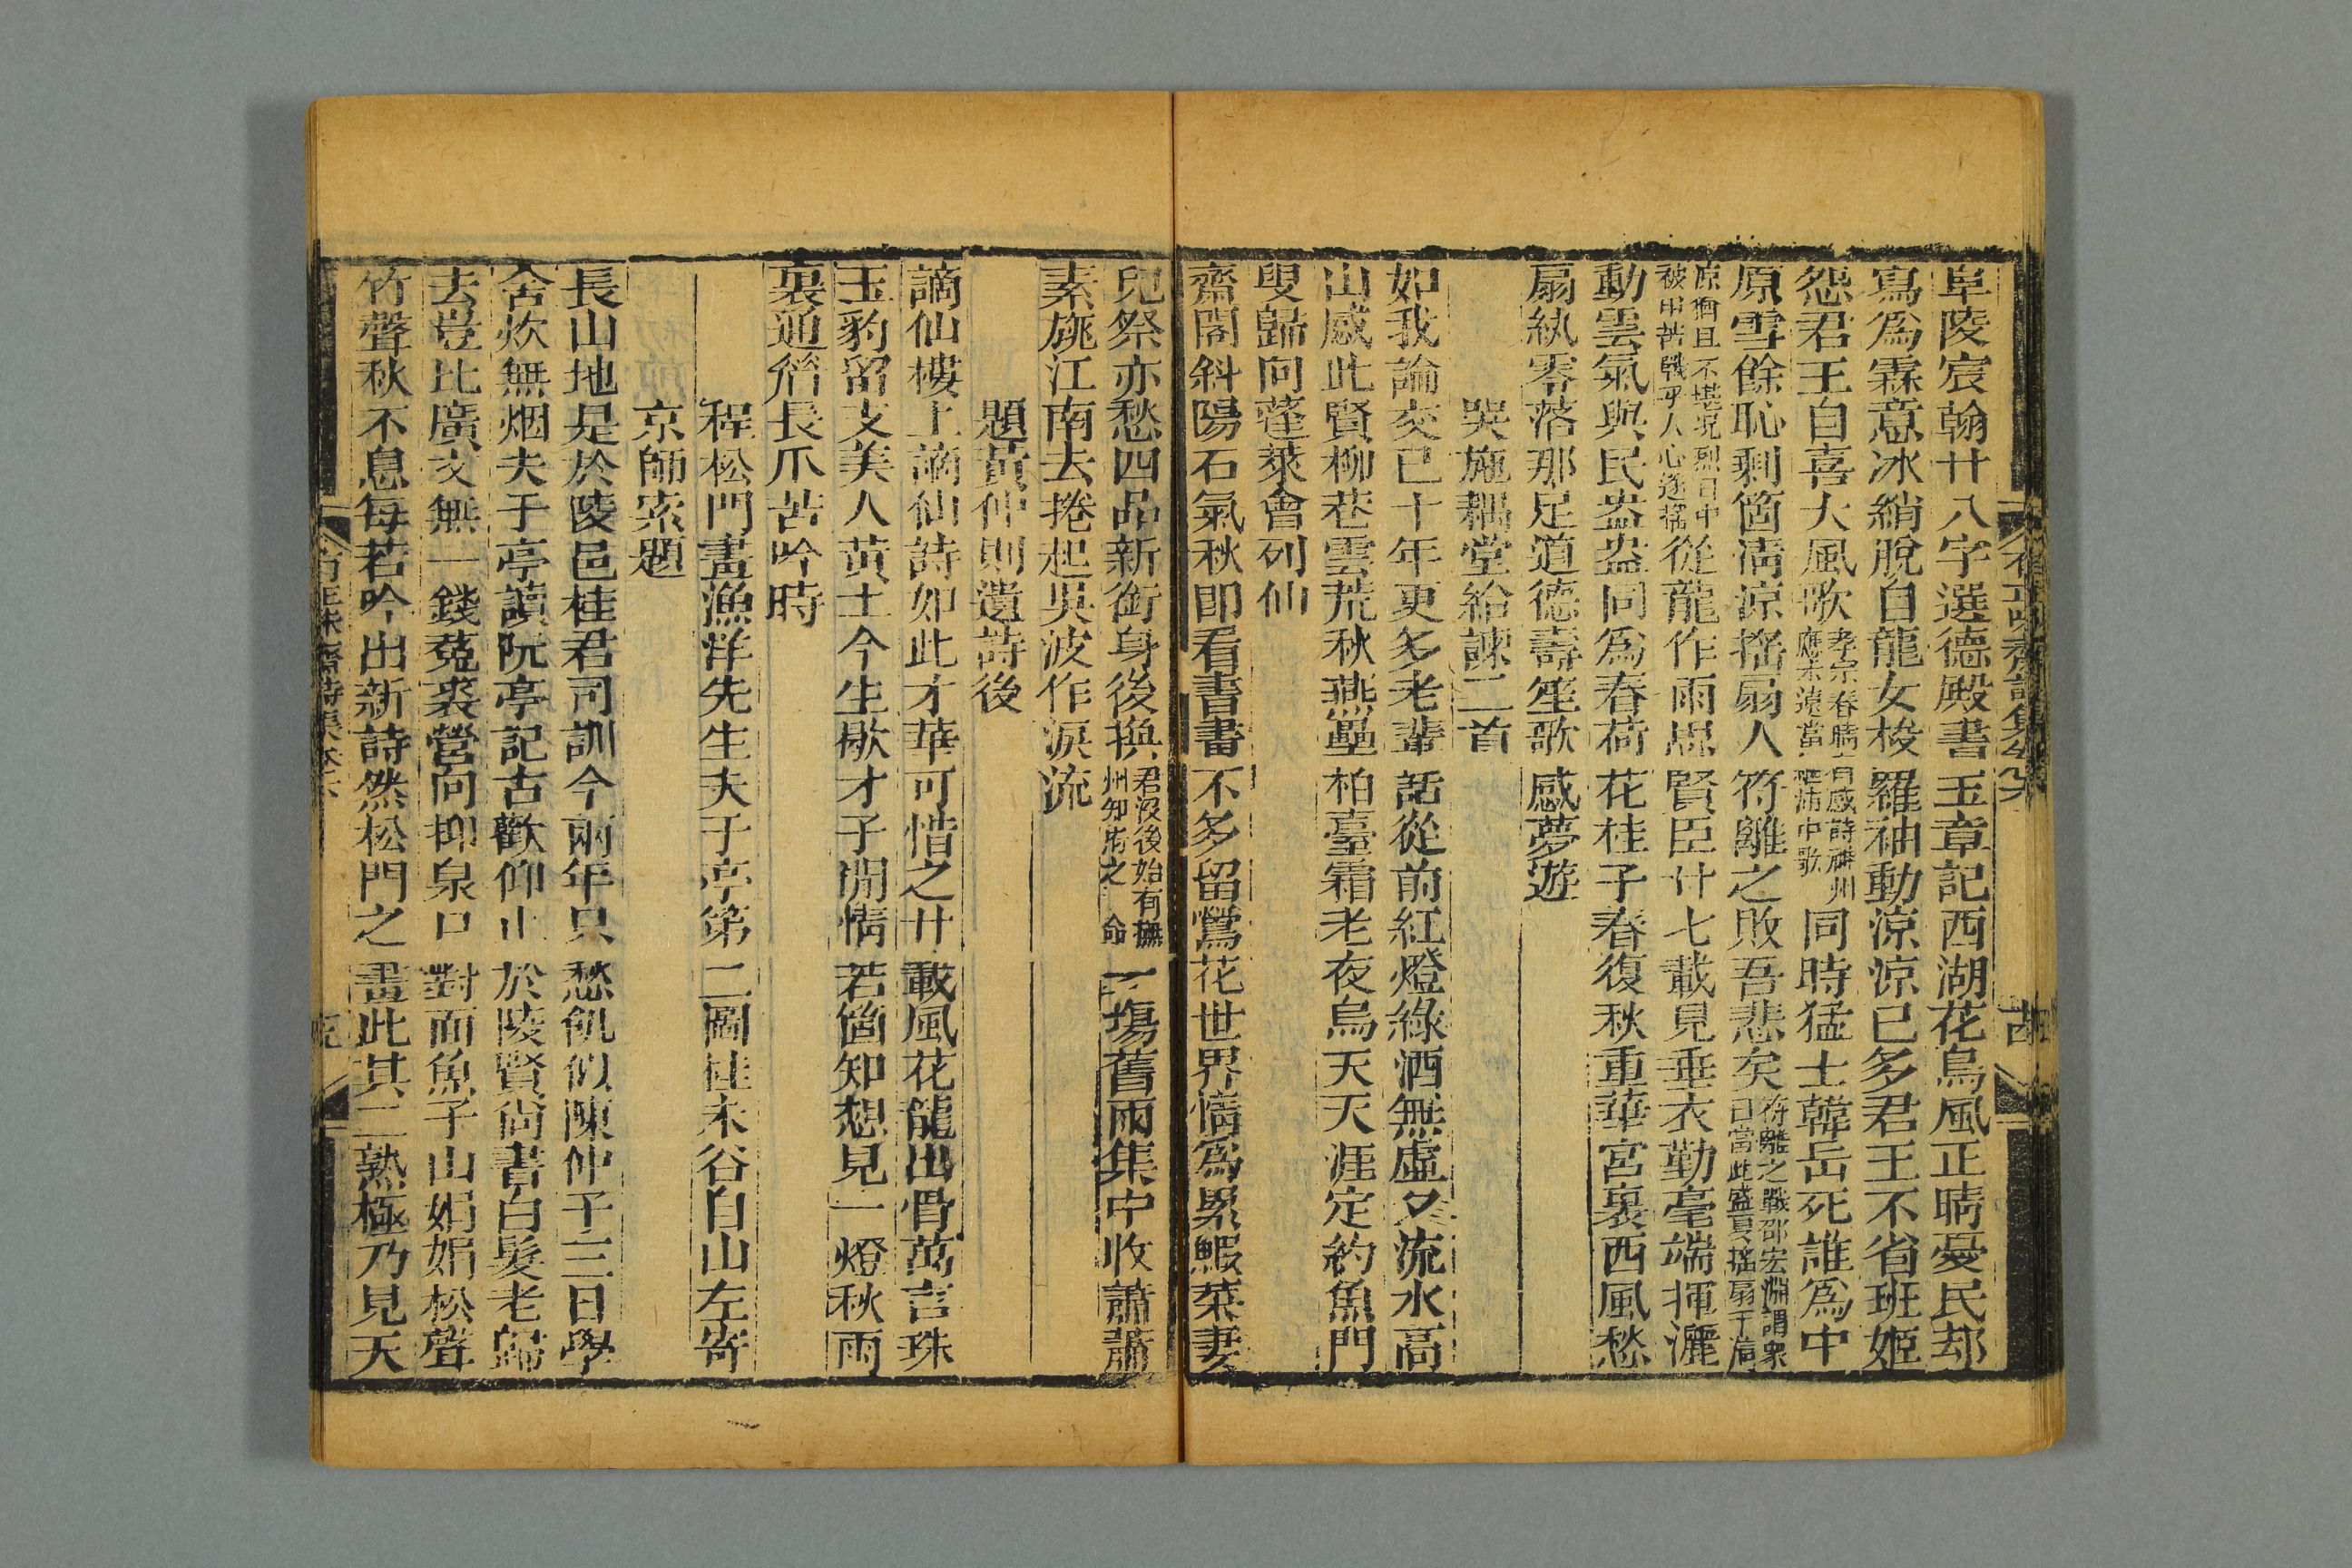 阜陵宸翰廿八字選德殿書玉章記西湖花鳥風正晴憂民却
寫為霖意冰綃脫自龍女梭羅袖動涼涼已多君王不省班姬
怨君王自喜大風歌孝宗春晴有感詩神州應未遠當繼沛中歌同時猛士韓岳死誰為中
原雪餘恥剩箇淸涼搖扇人符離之敗吾悲矣符離之戰邵宏淵謂衆曰當此盛夏搖扇于清
涼猶且不堪况烈日中被甲苦戰乎人心遂搖從龍作雨思賢臣廿七載見垂衣勤毫端揮灑
動雲氣與民盎盎同為春荷花桂子春復秋重華宮裏西風愁
扇紈零落那足道德壽笙歌感夢遊
哭施耦堂給諫二首
如我論交已十年更多老輩話從前紅燈綠酒無虛夕流水高
山感此賢柳巷雲荒秋燕壘柏臺霜老夜烏天天涯定約魚門
叟歸向蓬萊會列仙
齋閣斜陽石氣秋卽看書畫不多留鶯花世界情為累鰕菜妻
兒祭亦愁四品新銜身後換君沒後始有撫州知府之命一塲舊雨集中收蕭蕭
素旐江南去捲起吳波作淚流
題黃仲則遺詩後
謫仙樓上謫仙詩如此才華可惜之廿載風花龍出骨萬言珠
玉豹留文美人黃土今生歇才子閒情若箇知想見一燈秋雨
裏通簷長爪苦吟時
程松門畫漁洋先生夫于亭第二圖桂未谷自山左寄
京師索題
長山地是於陵邑桂君司訓今兩年只愁飢似陳仲子三日學
舍炊無烟夫于亭讀阮亭記古歡仰止於陵賢尙書白髮老歸
去豈比廣文無一錢菟裘營向抑泉口對面魚子山娟娟松聲
竹聲秋不息每若吟出新詩然松門之畫此其二熟極乃見天